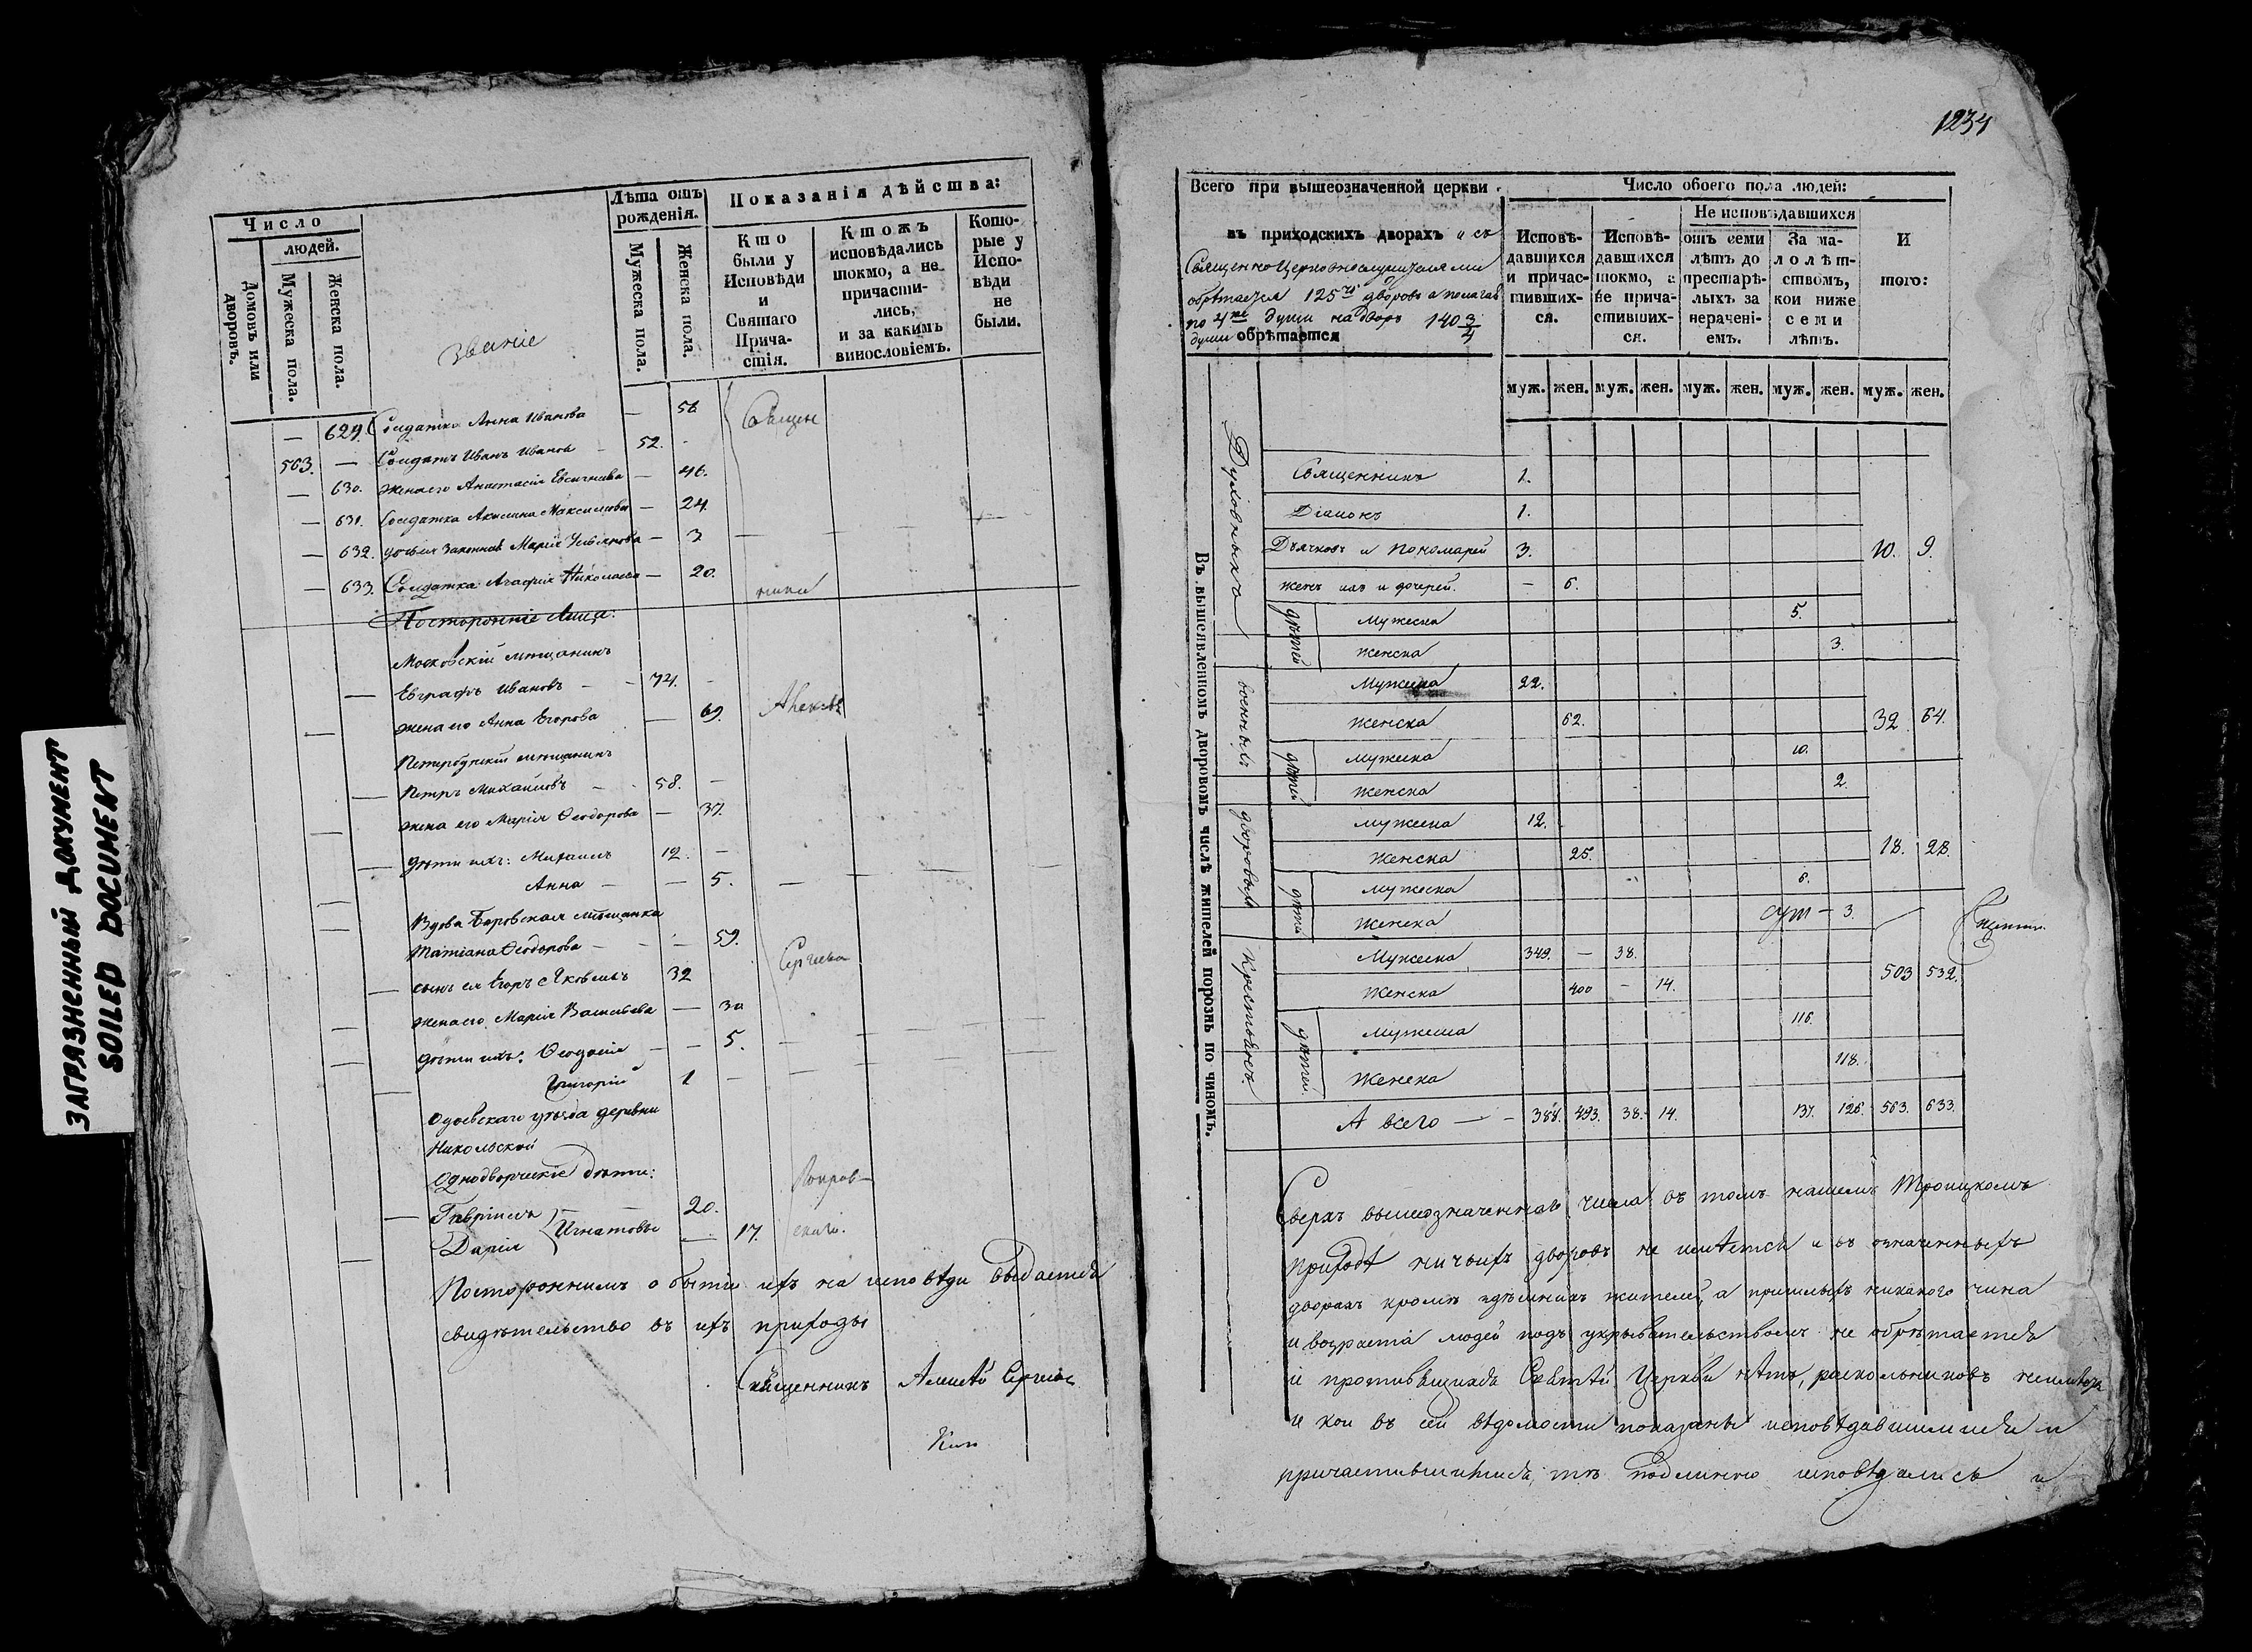 ЗАГРЯЗНЕННЫЙ ДОКУМЕНТ
SOILED DOCUMENT
Число
людей.
Домовъ или дворовъ.
Мужеска пола.
Женска пола.
званіе
Лѣта отъ рожденія.
Мужеска пола.
Женска пола.
Показанія дѣйства:
Кто были у Исповѣди и Святаго Прича-стія.
Ктожъ исповѣдались токмо, а не причасти-лись, и за какимъ винословіемъ.
Кото-рые у Испо-вѣди не были.
— 629. Солдатка Анна Иванова — 56.
563. — Солдатъ Иванъ Ивановъ — 52. -
— 630. жена его Анастасія — 46.
— 631. Солдатка Акилина Максимова — 24.
— 632. Марія — 3 — — —
— 633. Солдатка Агафія Николаева — 20.
Постороннiе лица:
Московскій мѣщанинъ
— Евграфъ Ивановъ — - 74. -
— жена его Анна Егорова — 69.
мѣщанинъ
— Петръ Михайловъ - 58. —
— жена его Марія Ѳеодорова — 37.
— дѣти ихъ: Михаилъ 12. —
— Анна — — 5. — — — —
Вдова Боровская мѣщанка
— Татіана Ѳеодорова — — 59.
— сынъ ея Егоръ Яковлевъ 32
— жена его Марія Васильева — 30
— дѣти ихъ: Ѳеодосія — — 5. — — — —
— Григорій 1 — —
Одоевскаго уѣзда деревни
Никольской
Однодворческіе дѣти:
— Гавріилъ } Игнатовы 20.
— Дарія — 17.
Постороннимъ о бытіи ихъ на исповѣди выдается
свидѣтельство въ ихъ приходы
Священникъ Алексѣй Сергіевъ
1234
Всего при вышеозначенной церкви
въ приходскихъ дворахъ и съ
Священноцерковнослужителями
обрѣтается 125ть дворовъ а полагая
по 4ре души на дворъ 140 3/4
души обрѣтается
Число обоего пола людей:
Исповѣ-давшихся и причас-тивших-ся.
Исповѣ-давшихся токмо, а не прича-стивших-ся.
Не исповѣдавшихся
отъ семи лѣтъ до престарѣ-лыхъ за нерачені-емъ.
За ма-лолѣт-ствомъ, кои ниже семи лѣтъ.
И того:
муж. жен. муж. жен. муж. жен. муж. жен. муж. жен.
Въ вышеявленномъ дворовомъ числѣ жителей порознь по чиномъ.
Духовныхъ
Священникъ 1.
Діаконъ 1.
Дьячковъ и Пономарей 3. 10. 9.
женъ ихъ и дочерей. — 6.
дѣтей
Мужеска 5.
Женска 3.
военныхъ
Мужеска 22.
Женска 62. 32 64.
дѣтей
Мужеска 10.
Женска 2.
дворовыхъ
Мужеска 12.
Женска 25. 18. 28.
дѣтей
Мужеска 6.
Женска 3.
Крестьянъ
Мужеска 349. — 38.
Женска 400 — 14. 503 532.
дѣтей
Мужеска 116.
Женска 118.
А всего — - 388. 493. 38. 14. 137. 126. 563. 633.
Сверхъ вышеозначеннаго числа въ томъ нашемъ Троицкомъ
приходѣ ничьихъ дворовъ не имѣется и въ означенныхъ
дворахъ кромѣ здѣшнихъ жителей, а пришлыхъ никакого чина
и возраста людей подъ укрывательствомъ не обрѣтается
и противящихся Святѣй Церкви нѣтъ, раскольниковъ
и кои въ сей вѣдомости показаны исповѣдавшимися и
причастившимися, тѣ подлинно исповѣдались и